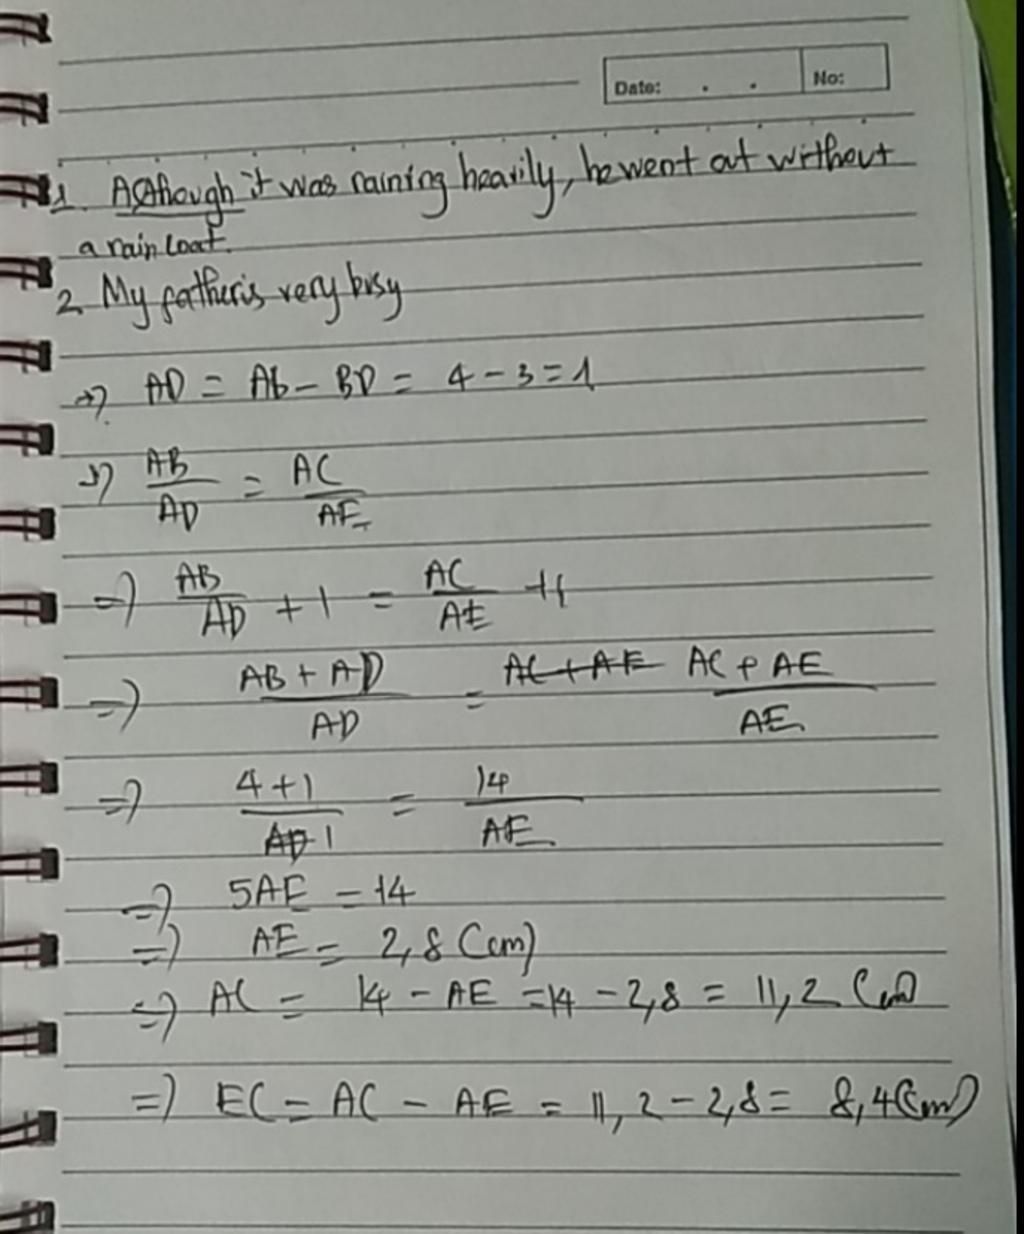 Date: . . No:
1. Although it was raining heavily, he went out without
a rain coat.
2. My father is very busy
=> AD = Ab - BD = 4 - 3 = 1
=> AB/AD = AC/AE
=> AB/AD + 1 = AC/AE + 1
=> AB + AD/AD = AC + AE AC + AE/AE
=> 4 + 1/AD 1 = 14/AE
=> 5AE = 14
=> AE = 2,8 (cm)
=> AC = 14 - AE = 14 - 2,8 = 11,2 (cm)
=> EC = AC - AE = 11,2 - 2,8 = 8,4 (cm)